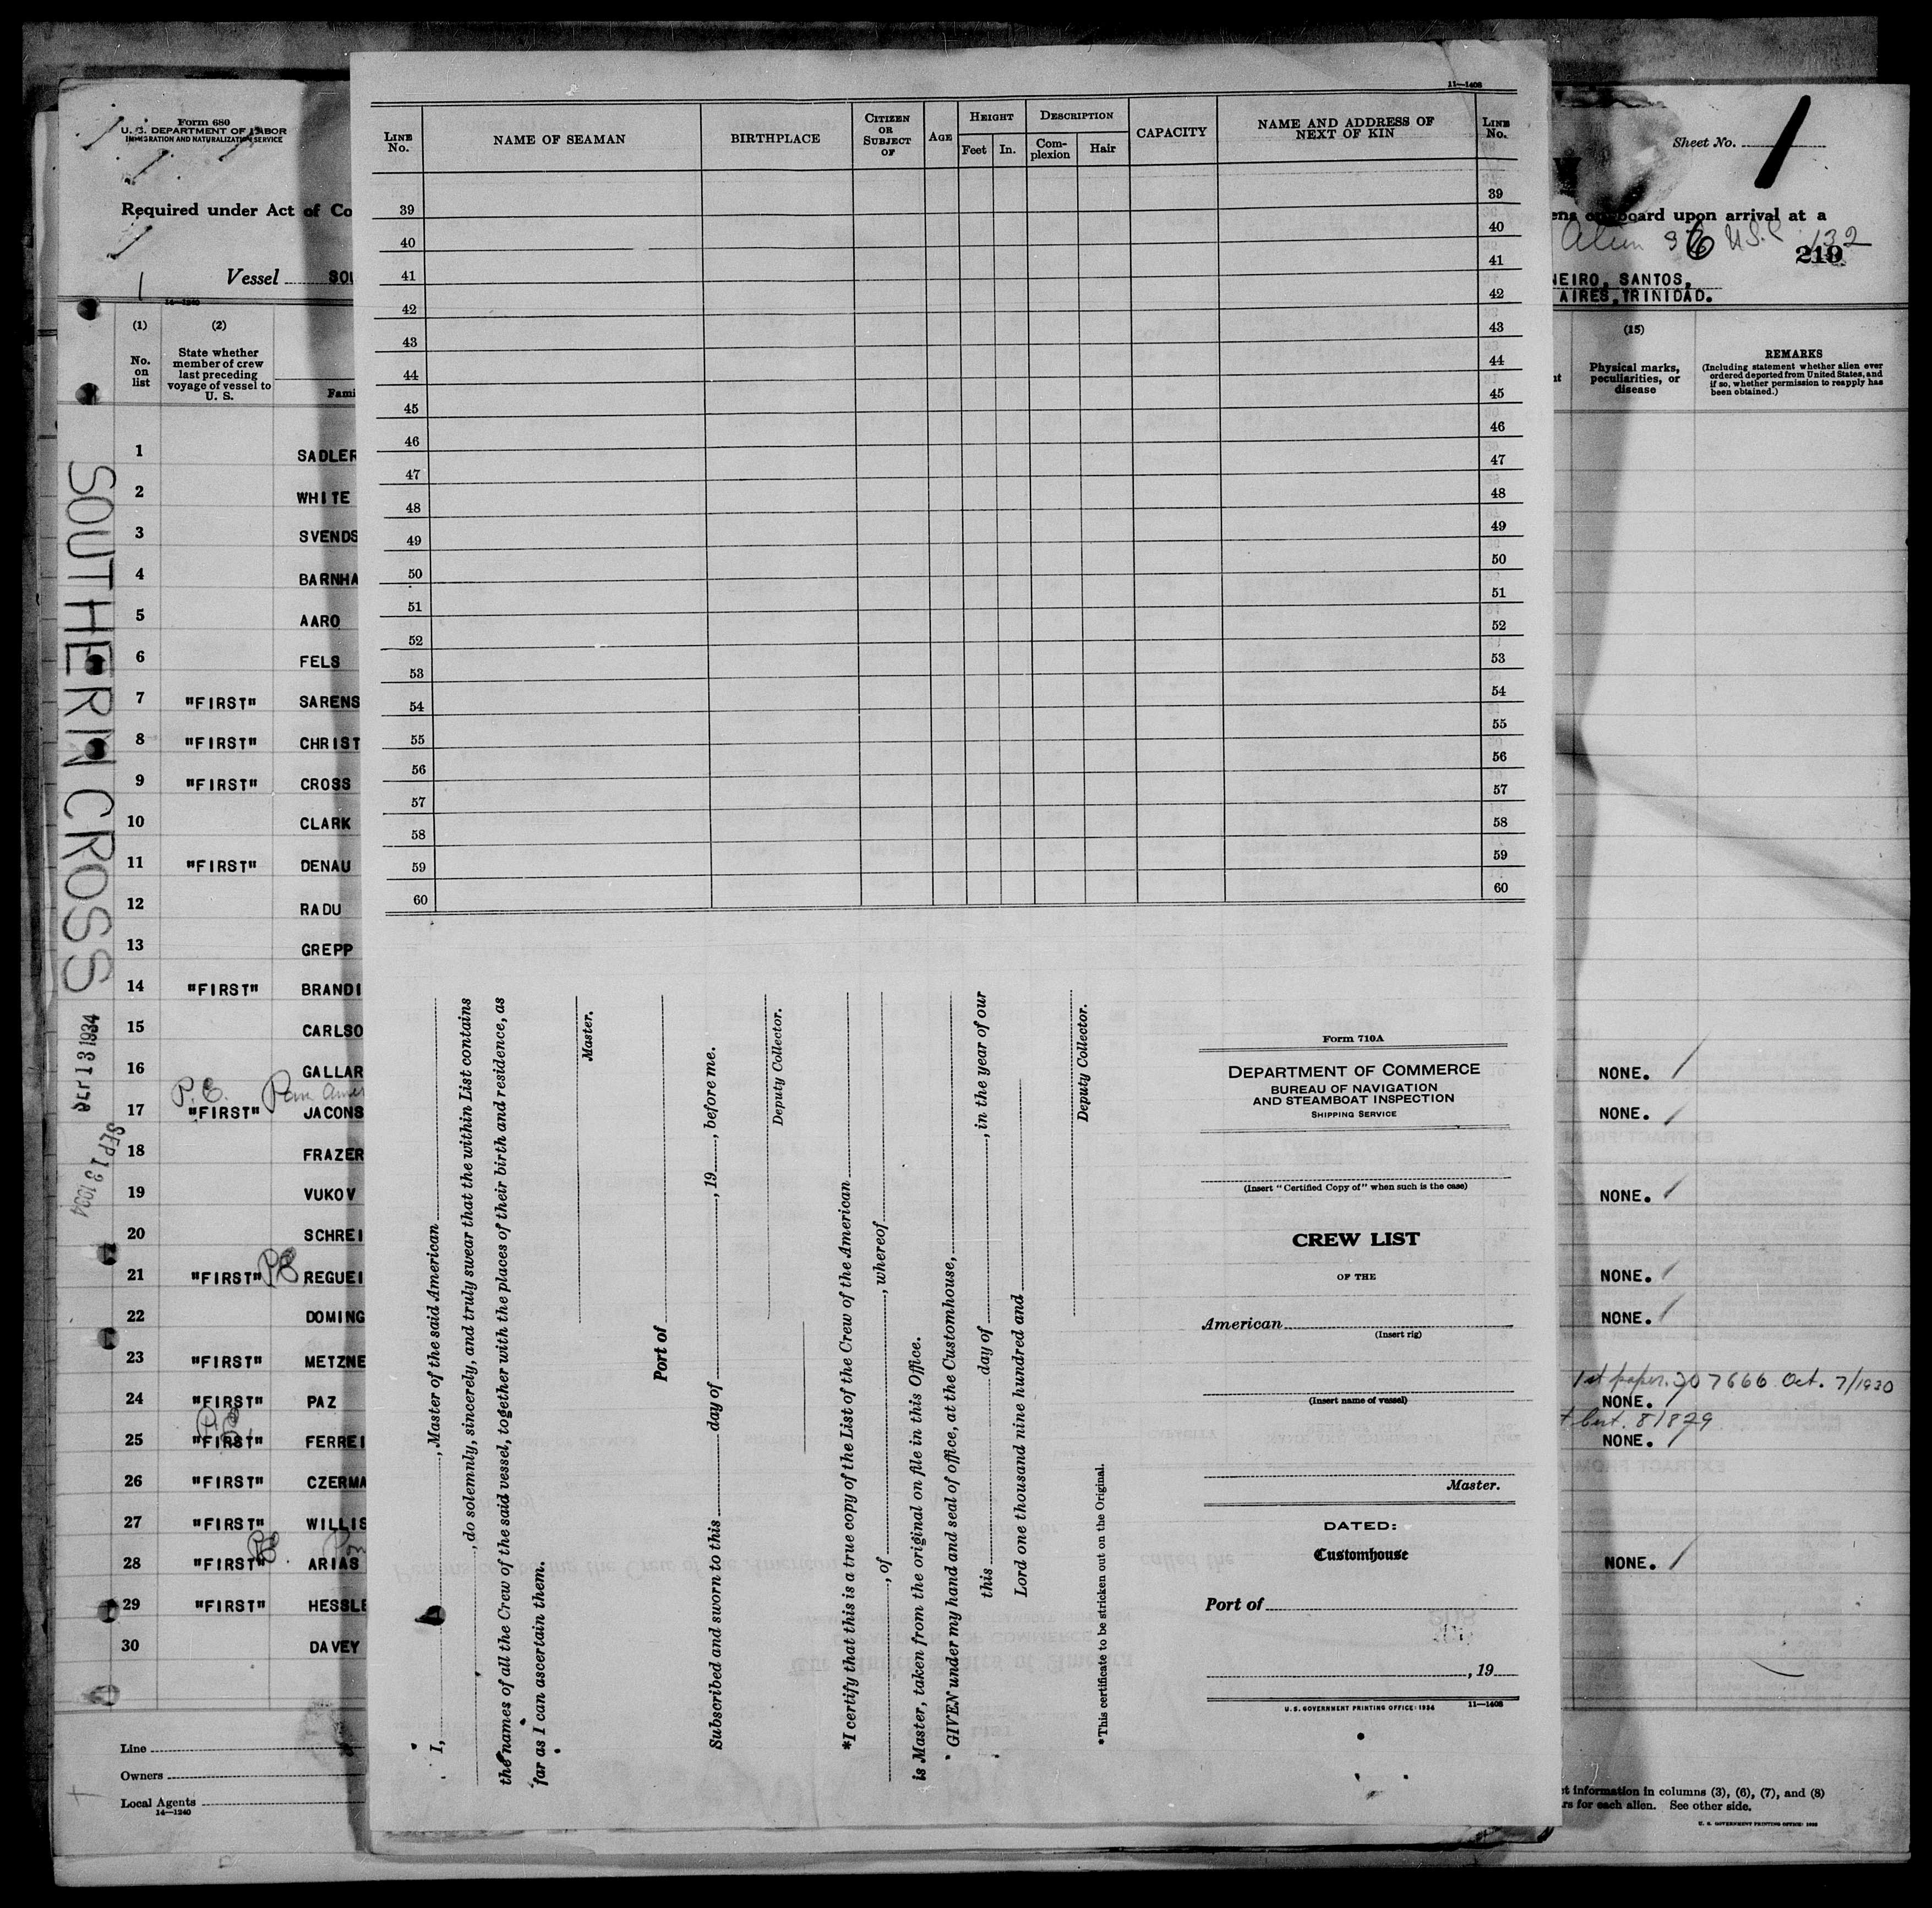 Form 680
U. S. DEPARTMENT OF LABOR
IMMIGRATION AND NATURALIZATION SERVICE
Required under Act of Co
Vessel SOU
14—1240
(1)
No. on list
(2)
State whether member of crew last preceding voyage of vessel to U. S.
Fami
1 SADLER
2 WHITE
3 SVENDS
4 BARNHA
5 AARO
6 FELS
7 "FIRST" SARENS
8 "FIRST" CHRIST
9 "FIRST" CROSS
10 CLARK
11 "FIRST" DENAU
12 RADU
13 GREPP
14 "FIRST" BRANDI
15 CARLSO
16 GALLAR
P.E.
17 "FIRST" JACONS
18 FRAZER
19 VUKOV
20 SCHREI
21 "FIRST" PE REGUEI
22 DOMING
23 "FIRST" METZNE
24 "FIRST" PAZ
P.E.
25 "FIRST" FERREI
26 "FIRST" CZERMA
27 "FIRST" WILLIS
PE
28 "FIRST" ARIAS
29 "FIRST" HESSLE
30 DAVEY
Line
Owners
Local Agents
14—1240
SOUTHERN CROSS
SEP 13 1934
SEP 13 1934
11—1408
LINE No.
NAME OF SEAMAN
BIRTHPLACE
CITIZEN OR SUBJECT OF
AGE
HEIGHT
Feet In.
DESCRIPTION
Complexion Hair
CAPACITY
NAME AND ADDRESS OF NEXT OF KIN
LINE No.
39 39
40 40
41 41
42 42
43 43
44 44
45 45
46 46
47 47
48 48
49 49
50 50
51 51
52 52
53 53
54 54
55 55
56 56
57 57
58 58
59 59
60 60
I, , Master of the said American
, do solemnly, sincerely, and truly swear that the within List contains
the names of all the Crew of the said vessel, together with the places of their birth and residence, as
far as I can ascertain them.
Master.
Port of
Subscribed and sworn to this day of , 19 , before me.
Deputy Collector.
*I certify that this is a true copy of the List of the Crew of the American
, of , whereof
is Master, taken from the original on file in this Office.
GIVEN under my hand and seal of office, at the Customhouse,
this day of , in the year of our
Lord one thousand nine hundred and
Deputy Collector.
*This certificate to be stricken out on the Original.
Form 710A
DEPARTMENT OF COMMERCE
BUREAU OF NAVIGATION
AND STEAMBOAT INSPECTION
SHIPPING SERVICE
(Insert "Certified Copy of" when such is the case)
CREW LIST
OF THE
American
(Insert rig)
(Insert name of vessel)
Master.
DATED:
Customhouse
Port of
, 19
U. S. GOVERNMENT PRINTING OFFICE: 1934 11—1408
Sheet No. 1
ens on board upon arrival at a
Alien 96 U.S.C. 132
210
NEIRO, SANTOS,
AIRES, TRINIDAD.
(15)
Physical marks, peculiarities, or disease
REMARKS
(Including statement whether alien ever ordered deported from United States, and if so, whether permission to reapply has been obtained.)
NONE.
NONE.
NONE.
NONE.
NONE.
1st paper. 207666 Oct. 7/1930
NONE.
t Cert. 81829
NONE.
NONE.
t information in columns (3), (6), (7), and (8)
rs for each alien. See other side.
U. S. GOVERNMENT PRINTING OFFICE: